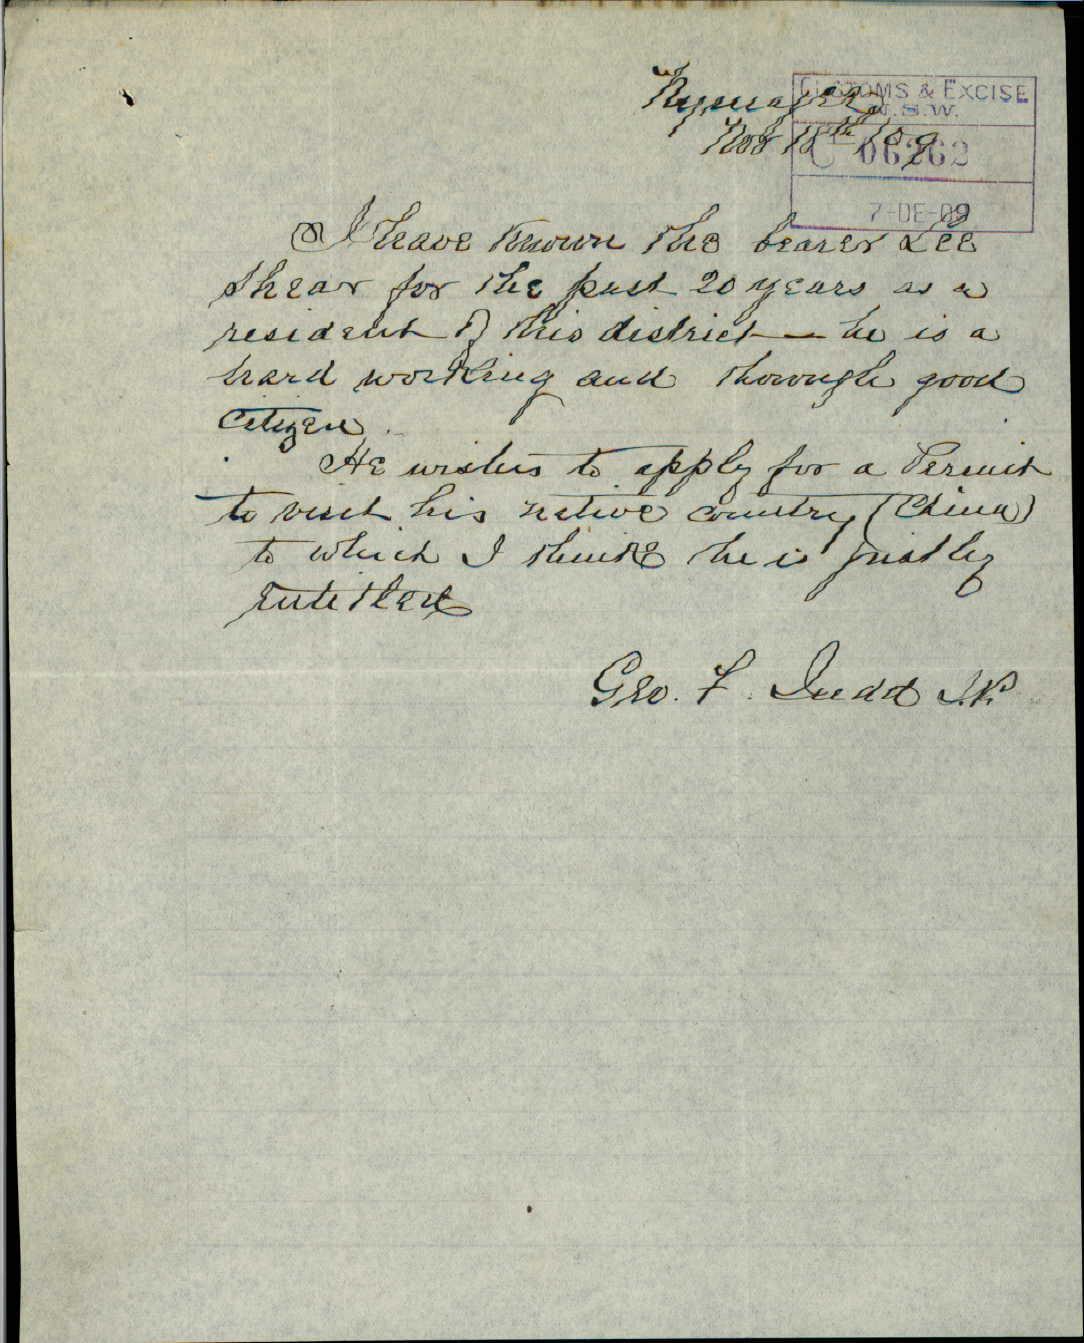 Nymagee
CUSTOMS & EXCISE
N.S.W.
Nov 18th /09
C 06262
7-DE-09
I have known the bearer Lee
Shear for the past 20 years as a
resident of this district — he is a
hard working and thorough good
citizen.
He wishes to apply for a Permit
to visit his native country (China)
to which I think he is justly
entitled
Geo. F. Judd J.P.